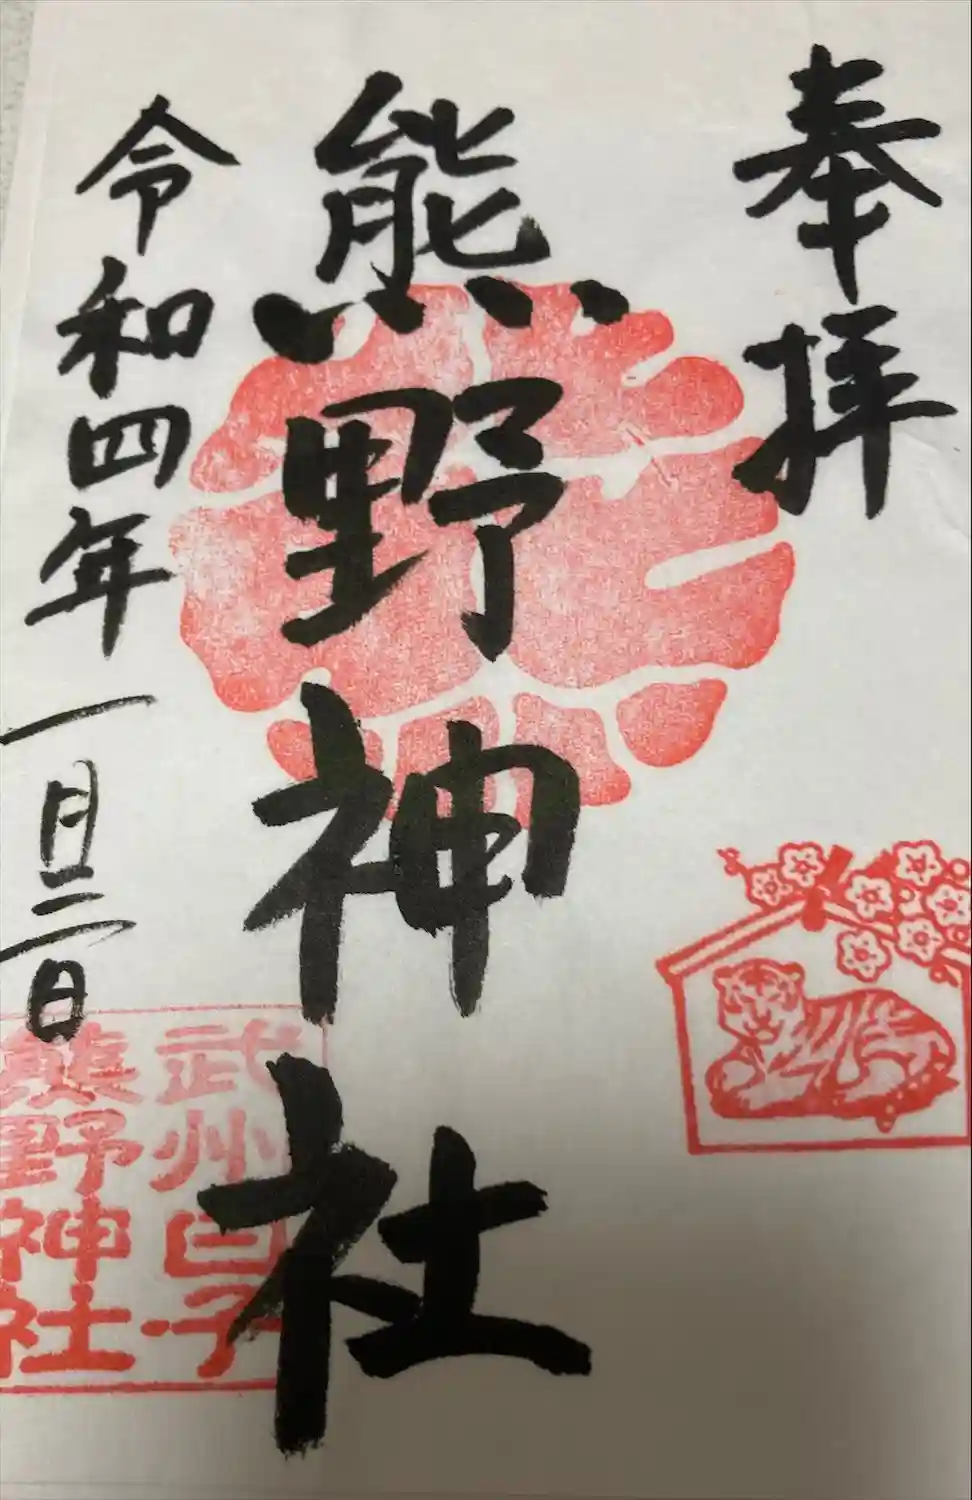 奉拝
熊野神社
令和四年一月二日
武州白子
熊野神社